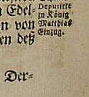 n Edel-
n von
en deß
Deputirte
zu König
Matthias
Einzug.
Der-